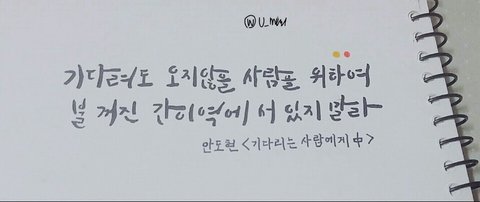 ⓦ U_mysl
기다려도 오지않을 사람을 위하여
불 꺼진 간이역에 서 있지 말라
안도현 <기다리는 사람에게 中>